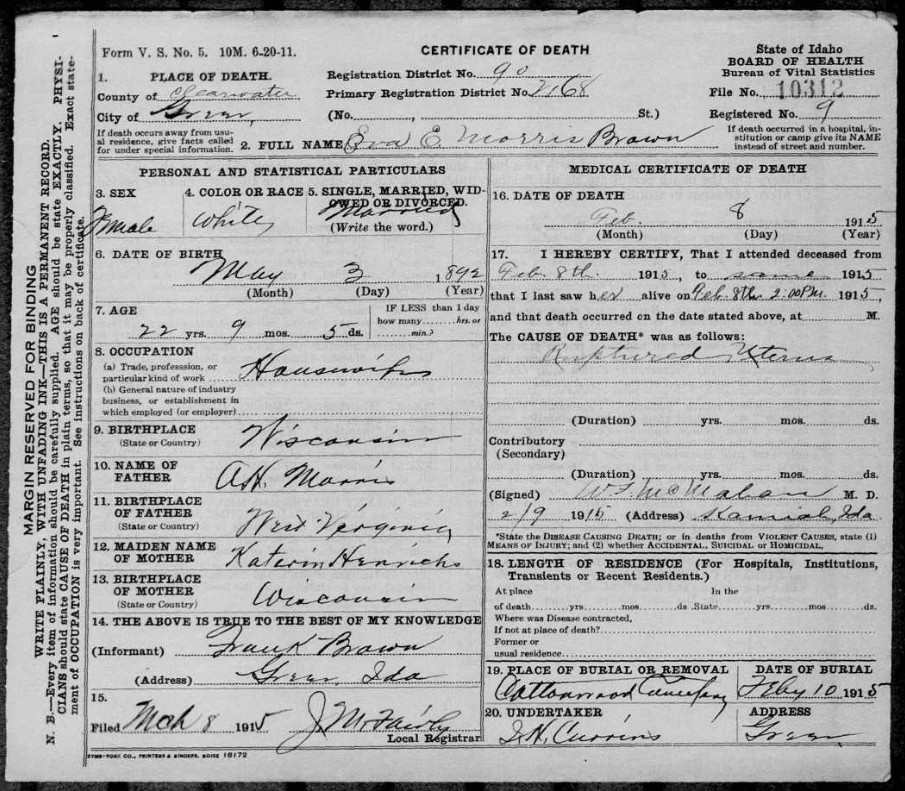 Form V. S. No. 5. 10M. 6-20-11.
CERTIFICATE OF DEATH
State of Idaho
BOARD OF HEALTH
Bureau of Vital Statistics
1. PLACE OF DEATH.
County of Clearwater
City of Greer,
If death occurs away from usu-
al residence, give facts called
for under special information.
Registration District No. 90
Primary Registration District No. 2168
(No. , St.)
File No. 10312
Registered No. 9
If death occurred in a hospital, in-
stitution or camp give its NAME
instead of street and number.
2. FULL NAME Eva E Morris Brown
PERSONAL AND STATISTICAL PARTICULARS
3. SEX
Female
4. COLOR OR RACE
White
5. SINGLE, MARRIED, WID-
OWED OR DIVORCED.
Married
(Write the word.)
6. DATE OF BIRTH
May 3 1892
(Month) (Day) (Year)
7. AGE
22 yrs. 9 mos. 5 ds.
IF LESS than 1 day
how many hrs. or
min.?
8. OCCUPATION
(a) Trade, professsion, or
particular kind of work Housewife
(b) General nature of industry
business, or establishment in
which employed (or employer)
9. BIRTHPLACE
(State or Country) Wisconsin
10. NAME OF
FATHER A.H. Morris
11. BIRTHPLACE
OF FATHER
(State or Country) West Virginia
12. MAIDEN NAME
OF MOTHER Katerin Henrichs
13. BIRTHPLACE
OF MOTHER
(State or Country) Wisconsin
14. THE ABOVE IS TRUE TO THE BEST OF MY KNOWLEDGE
(Informant) Frank Brown
(Address) Greer, Ida
15.
Filed Mch 8 1915 J. M. Fairly
Local Registrar
SYMS-YORK CO., PRINTERS & BINDERS, BOISE 16172
MEDICAL CERTIFICATE OF DEATH
16. DATE OF DEATH
Feb. 8 1915
(Month) (Day) (Year)
17. I HEREBY CERTIFY, That I attended deceased from
Feb 8th. 1915, to same 1915
that I last saw her alive on Feb. 8th. 2:00 P.M. 1915,
and that death occurred on the date stated above, at M.
The CAUSE OF DEATH* was as follows:
Ruptured Uterus
(Duration) yrs. mos. ds.
Contributory
(Secondary)
(Duration) yrs. mos. ds.
(Signed) W.F. McMahan M. D.
2/9 1915 (Address) Kamiah, Ida.
*State the DISEASE CAUSING DEATH; or in deaths from VIOLENT CAUSES, state (1)
MEANS OF INJURY; and (2) whether ACCIDENTAL, SUICIDAL OR HOMICIDAL,
18. LENGTH OF RESIDENCE (For Hospitals, Institutions,
Transients or Recent Residents.)
At place In the
of death yrs. mos. ds State yrs. mos. ds.
Where was Disease contracted,
If not at place of death?
Former or
usual residence
19. PLACE OF BURIAL OR REMOVAL
Cottonwood Cemetery
DATE OF BURIAL
Feby 10 1915
20. UNDERTAKER
J.H. Currins
ADDRESS
Greer
MARGIN RESERVED FOR BINDING
WRITE PLAINLY, WITH UNFADING INK—THIS IS A PERMANENT RECORD.
N. B.—Every item of information should be carefully supplied. AGE should be state EXACTLY. PHYSI-
CIANS should state CAUSE OF DEATH in plain terms, so that it may be properly classified. Exact state-
ment of OCCUPATION is very important. See instructions on back of certificate.